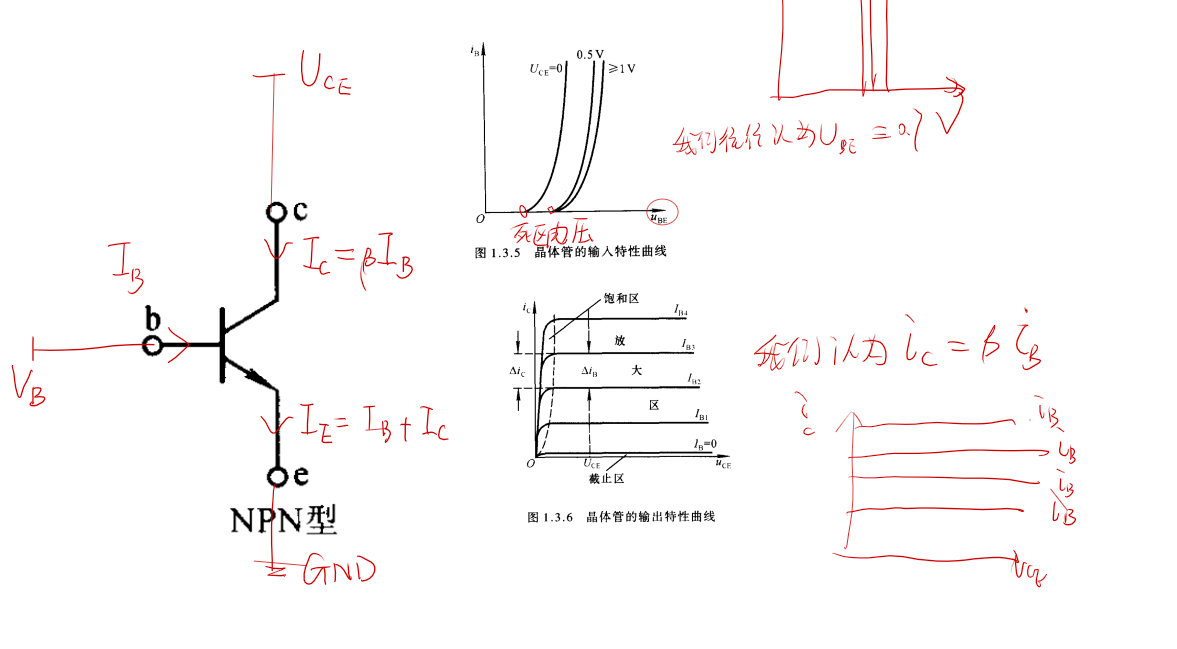 U_CE
c
I_C = βI_B
I_B
b
V_B
I_E = I_B + I_C
e
NPN型
GND
i_B
U_CE=0
0.5 V
≥1 V
O
u_BE
死区电压
图 1.3.5 晶体管的输入特性曲线
i_C
饱和区
I_B4
放
I_B3
Δi_C
Δi_B
大
I_B2
区
I_B1
I_B=0
O
U_CE
u_CE
截止区
图 1.3.6 晶体管的输出特性曲线
我们往往认为U_BE ≡ 0.7 V
我们认为 i_C = β i_B
i_C
i_B
i_B
i_B
i_B
V_CE